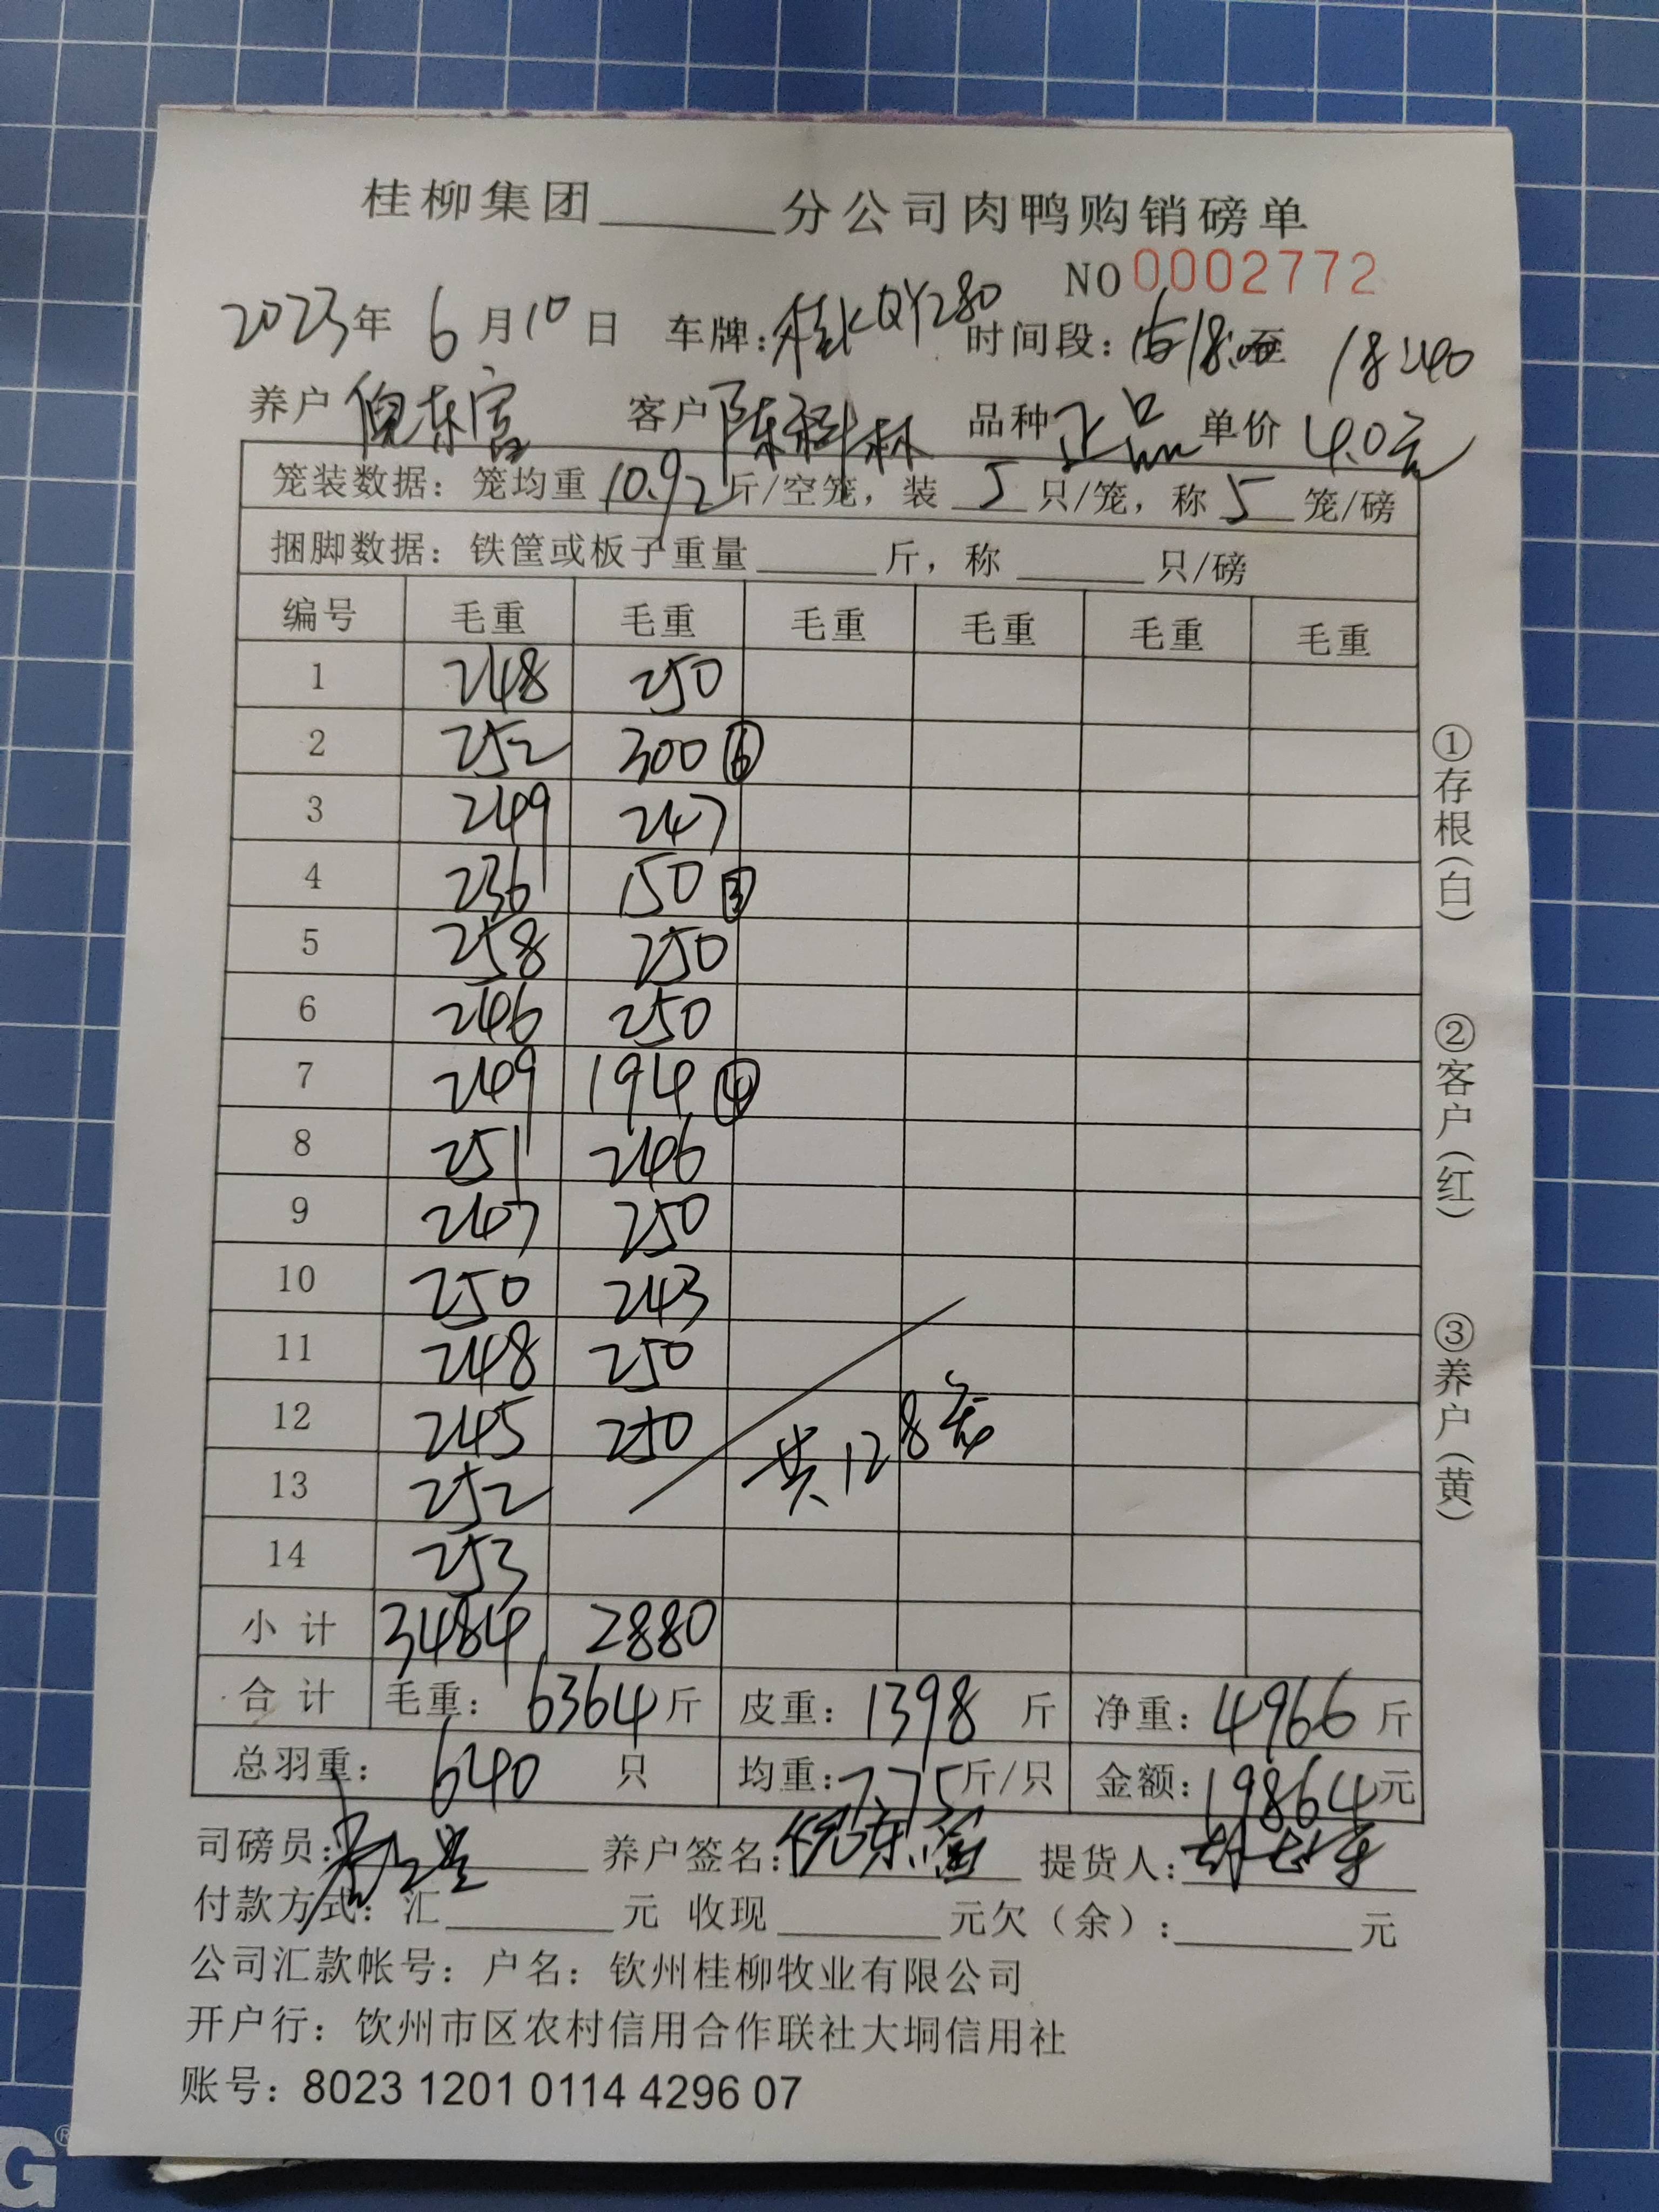 桂柳集团______分公司肉鸭购销磅单
NO 0002772
2023年 6月10日 车牌:桂KQY280 时间段: 18:00至 18:40
养户 倪东富 客户 陈科林 品种 正品 单价 4.0元
笼装数据: 笼均重 10.92 斤/空笼, 装 5 只/笼, 称 5 笼/磅
捆脚数据: 铁筐或板子重量______斤, 称______只/磅
编号 毛重 毛重 毛重 毛重 毛重 毛重
1 248 250
2 252 300 ⑥
3 249 247
4 236 150 ③
5 258 250
6 246 250
7 249 194 ④
8 251 246
9 247 250
10 250 243
11 248 250
12 245 250
共128笼
13 252
14 253
小计 3484 2880
合计 毛重: 6364斤 皮重: 1398 斤 净重: 4966 斤
总羽重: 640 只 均重: 7.75斤/只 金额: 19864元
司磅员: 养户签名: 倪东富 提货人:
付款方式: 汇______元 收现______元欠(余):______元
公司汇款帐号: 户名: 钦州桂柳牧业有限公司
开户行: 钦州市区农村信用合作联社大垌信用社
账号: 8023 1201 0114 4296 07
①存根(白)
②客户(红)
③养户(黄)
G®